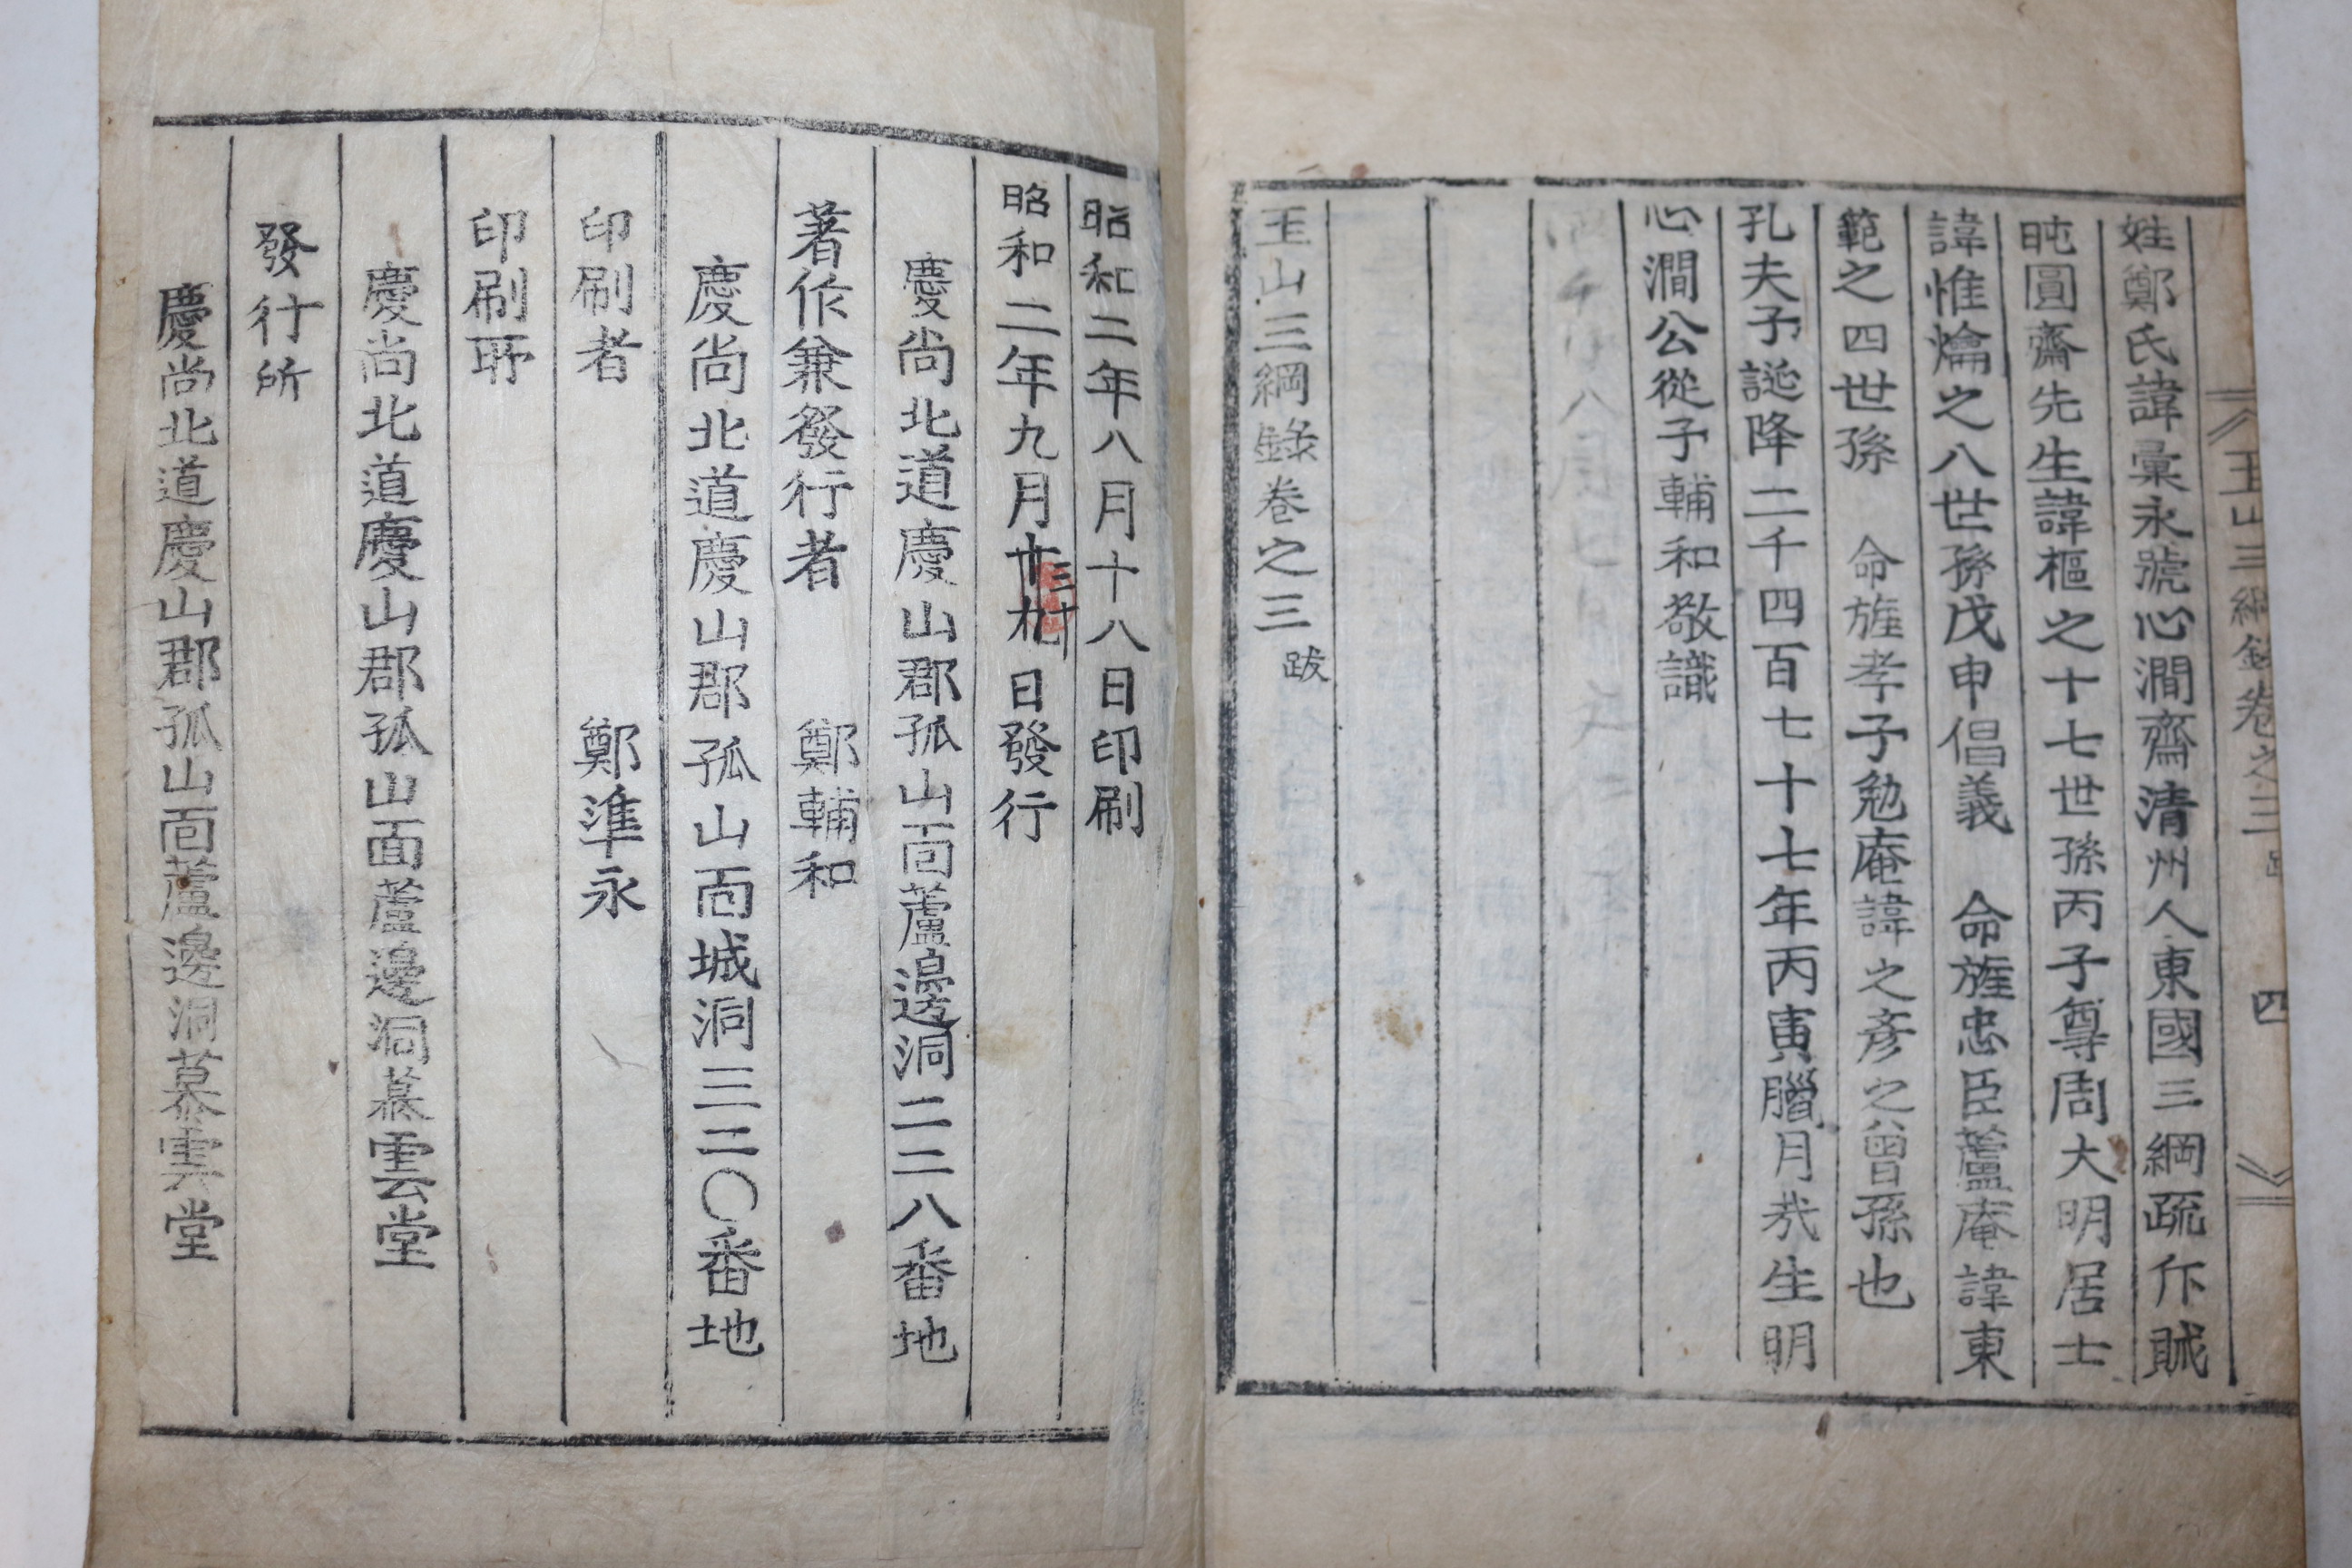 玉山三綱錄卷之三 跋 四
姓鄭氏諱彙永號心澗齋清州人東國三綱疏斥賊
盹圓齋先生諱樞之十七世孫丙子尊周大明居士
諱惟爚之八世孫戊申倡義 命旌忠臣蘆庵諱東
範之四世孫 命旌孝子勉庵諱之彥之曾孫也
孔夫子誕降二千四百七十七年丙寅臘月哉生明
心澗公從子輔和敬識
玉山三綱錄卷之三 跋
昭和二年八月十八日印刷
昭和二年九月三十日發行
慶尚北道慶山郡孤山面蘆邊洞二二八番地
著作兼發行者 鄭輔和
慶尚北道慶山郡孤山面城洞三二〇番地
印刷者 鄭準永
印刷所
慶尚北道慶山郡孤山面蘆邊洞慕雲堂
發行所
慶尚北道慶山郡孤山面蘆邊洞慕雲堂